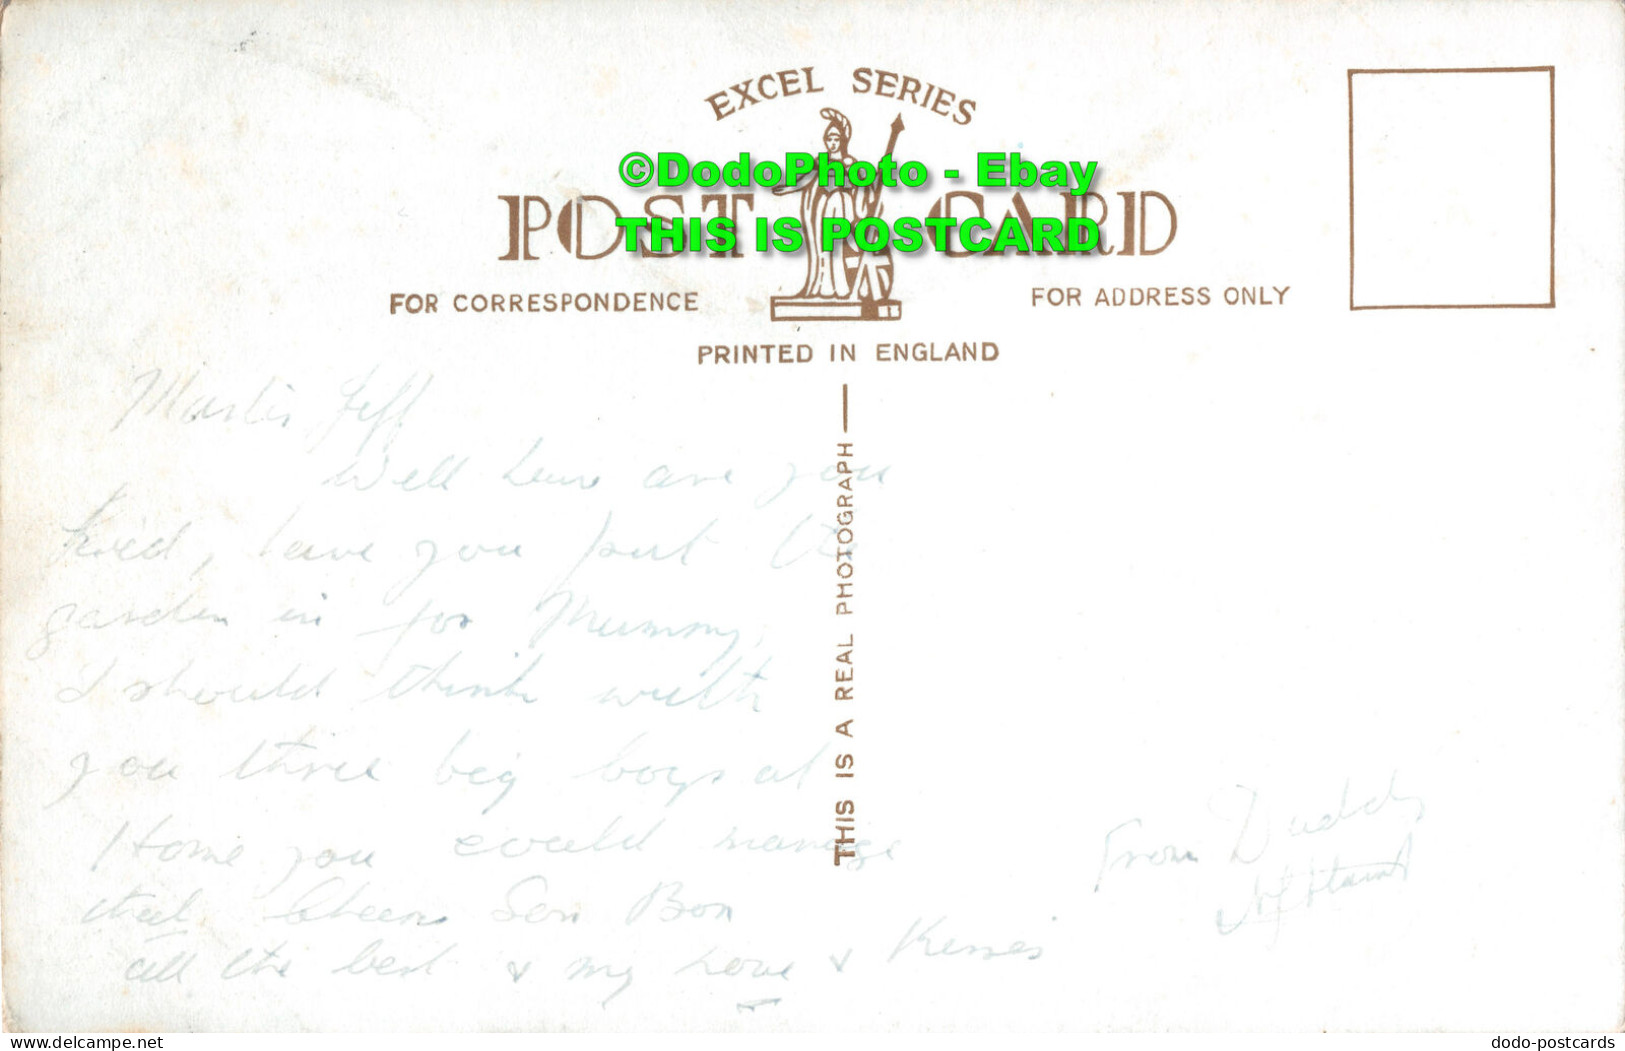 EXCEL SERIES
©DodoPhoto - Ebay
POST CARD
THIS IS POSTCARD
FOR CORRESPONDENCE
FOR ADDRESS ONLY
PRINTED IN ENGLAND
THIS IS A REAL PHOTOGRAPH
Jeff
Well how are you
have you put the
garden in for Mummy,
I should think with
you three big boys at
Home you could manage
that. Cheerio Son Bon
all the best & my Love & Kisses
From Daddy
akpool.co.uk - dodo-postcards